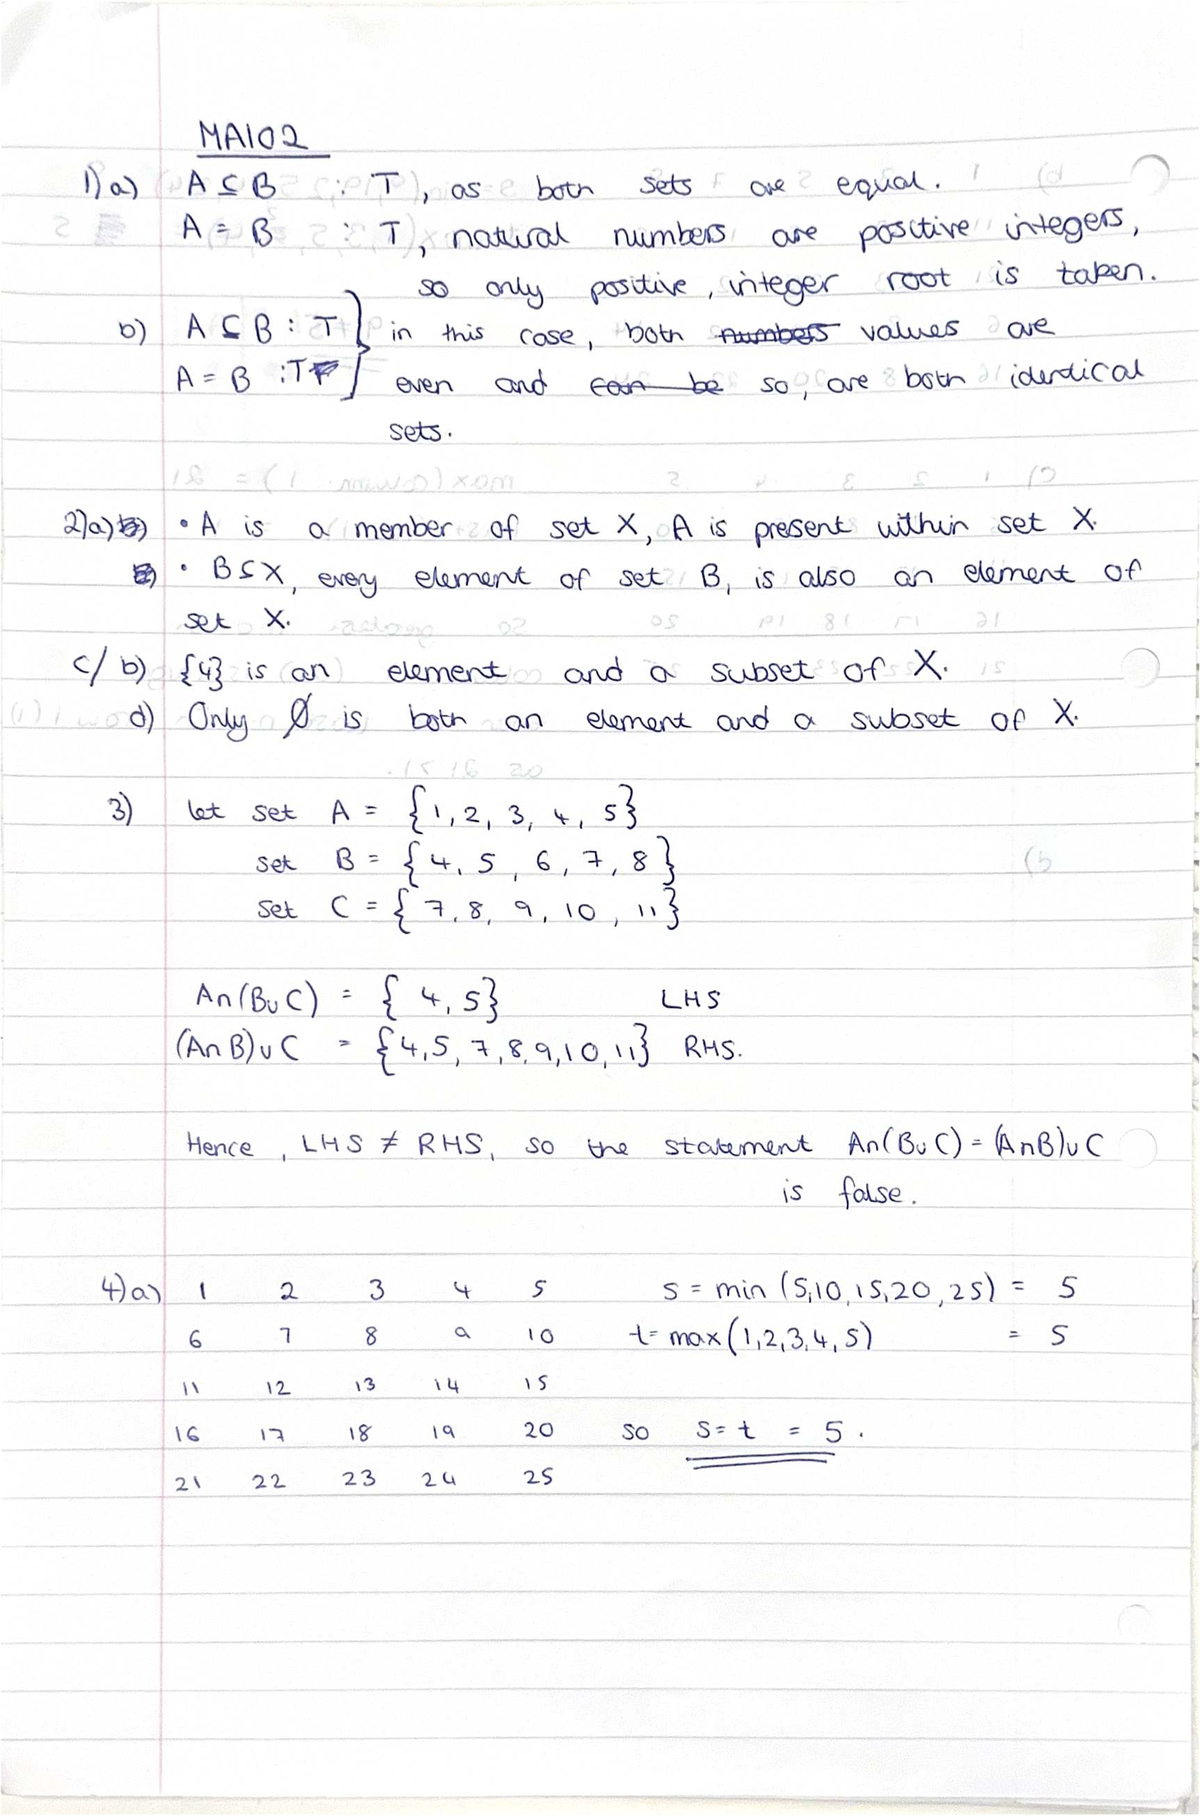 MA102
1) a) A ⊆ B : T, as both sets are equal.
A = B : T, natural numbers are positive integers,
so only positive, integer root is taken.
b) A ⊆ B : T } in this case, both numbers values are
A = B : T F } even and can be so, are both identical
sets.
2) a) • A is a member of set X, A is present within set X.
• B ⊆ X, every element of set B, is also an element of
set X.
c/ b) {4} is an element and a subset of X.
d) Only Ø is both an element and a subset of X.
3) let set A = {1, 2, 3, 4, 5}
set B = {4, 5, 6, 7, 8}
set C = {7, 8, 9, 10, 11}
A∩(B∪C) = {4, 5} LHS
(A∩B)∪C = {4, 5, 7, 8, 9, 10, 11} RHS.
Hence, LHS ≠ RHS, so the statement A∩(B∪C) = (A∩B)∪C
is false.
4) a) 1 2 3 4 5 s = min (5, 10, 15, 20, 25) = 5
6 7 8 9 10 t = max (1, 2, 3, 4, 5) = 5
11 12 13 14 15
16 17 18 19 20 so s = t = 5.
21 22 23 24 25